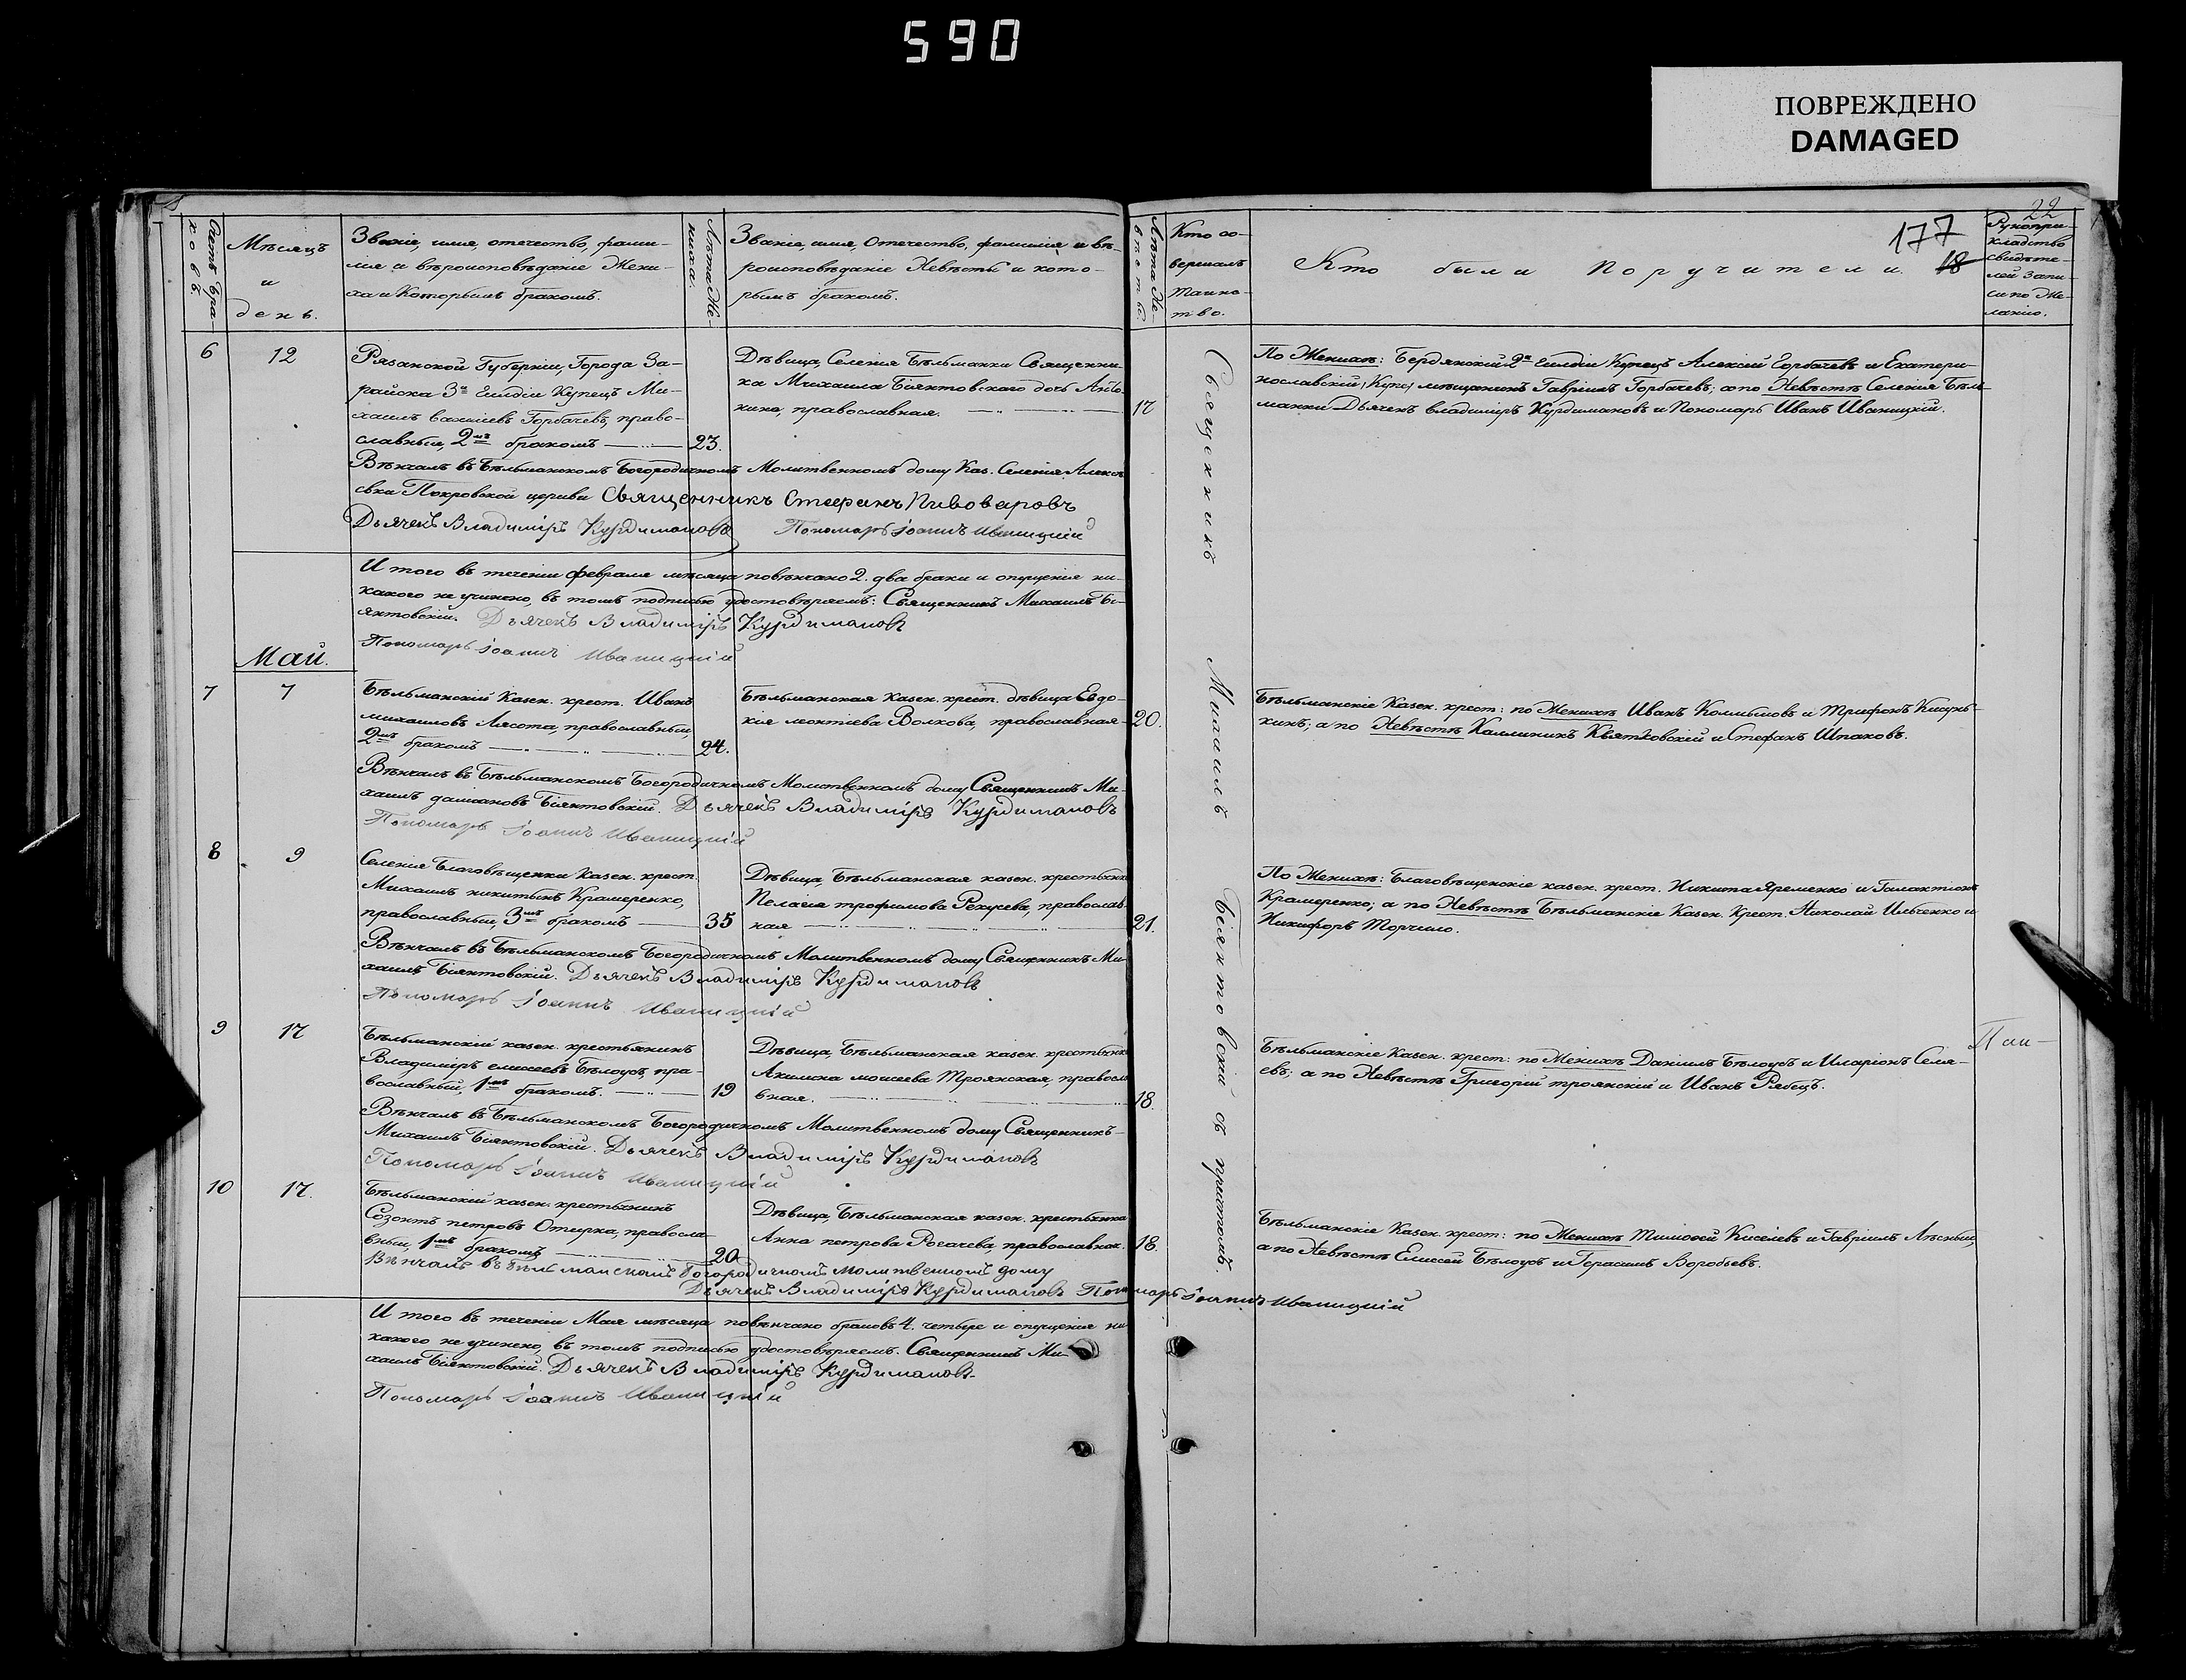 590
ПОВРЕЖДЕНО
DAMAGED
22
177
18
Счетъ бра-
ковъ.
Мѣсяцъ
и
день.
Званіе, имя, отечество, фами-
лія и вѣроисповѣданіе Жени-
ха и Которымъ бракомъ.
Лѣта Же-
ниха.
Званіе, имя, Отечество, фамилія и вѣ-
роисповѣданіе Невѣсты и кото-
рымъ бракомъ.
Лѣта Не-
вѣсты.
Кто со-
вершалъ
таинс-
тво.
Кто были Поручители.
Рукопри-
кладство
свидѣте-
лей запи-
си по Же-
ланію.
6
12
Рязанской Губерніи, Города За-
райска 3й Гильдіи Купецъ Ми-
хаилъ Горбачевъ, право-
славный, 2мъ бракомъ
23.
Дѣвица, Селенія Бѣльманки Священни-
ка Михаила Біянтовского дочь
православная.
17
По Женихѣ: Бердянскій 2й Гильдіи Купецъ Алексій Горбачевъ и Екатери-
нославскій мѣщанинъ Гавріилъ Горбачевъ; а по Невѣстѣ Селенія Бѣль-
манки Дьячекъ Владиміръ Курдимановъ и Пономарь Иванъ Иваницкій.
Вѣнчалъ въ Бѣльманскомъ Богородичномъ Молитвенномъ дому Каз. Селенія Алексѣ-
евки Покровской церкви Священникъ Стефанъ Пивоваровъ
Дьячекъ Владиміръ Курдимановъ Пономарь Іоаннъ Иваницкій
И того въ теченіи февраля мѣсяца повѣнчано 2. два браки и опущенія ни-
какого не учинено, въ томъ подписью удостовѣряемъ: Священникъ Михаилъ Бі-
янтовскій. Дьячекъ Владиміръ Курдимановъ
Пономарь Іоаннъ Иваницкій
Священникъ Михаилъ Біянтовскій съ причтомъ.
Май.
7
7
Бѣльманскій Казен. крест. Иванъ
михаиловъ Лясота, православный,
2мъ бракомъ
24.
Бѣльманская казен. крест. дѣвица Евдо-
кія леонтіева Волкова, православная
20.
Бѣльманскіе Казен. крест: по Женихѣ Иванъ и Трифонъ
кинъ; а по Невѣстѣ Каллиникъ Квятковскій и Стефанъ Шпаковъ.
Вѣнчалъ въ Бѣльманскомъ Богородичномъ Молитвенномъ дому Священникъ Ми-
хаилъ даміановъ Біянтовскій. Дьячекъ Владиміръ Курдимановъ
Пономарь Іоаннъ Иваницкій
8
9
Селенія Благовѣщенки Казен. крест.
Михаилъ никитинъ Крамеренко,
православный, 3мъ бракомъ
35
Дѣвица, Бѣльманская казен. крестьянка
Пелагія трофимова православ-
ная
21.
По Женихѣ: Благовѣщенскіе казен. крест. Никита Яременко и Галактіонъ
Крамеренко; а по Невѣстѣ Бѣльманскіе Казен. Крест. Николай Ильченко и
Никифоръ Торчило.
Вѣнчалъ въ Бѣльманскомъ Богородичномъ Молитвенномъ дому Священникъ Ми-
хаилъ Біянтовскій. Дьячекъ Владиміръ Курдимановъ
Пономарь Іоаннъ Иваницкій
9
17
Бѣльманскій казен. крестьянинъ
Владиміръ елисеевъ Бѣлоусъ, пра-
вославный, 1мъ бракомъ.
19
Дѣвица, Бѣльманская казен. крестьянка
Акилина моисеева Троянская, правосла-
вная.
18.
Бѣльманскіе Казен. крест: по Женихѣ Даніилъ Бѣлоусъ и Иларіонъ Селя-
евъ; а по Невѣстѣ Григорій троянскій и Иванъ Рябецъ.
Вѣнчалъ въ Бѣльманскомъ Богородичномъ Молитвенномъ дому Священникъ
Михаилъ Біянтовскій. Дьячекъ Владиміръ Курдимановъ
Пономарь Іоаннъ Иваницкій
10
17.
Бѣльманскій казен. крестьянинъ
Созонтъ петровъ Отирка, правосла-
вный, 1мъ бракомъ
20
Дѣвица, Бѣльманская казен. крестьянка
Анна петрова Рогачева, православная.
18.
Бѣльманскіе Казен. крест: по Женихѣ Тимофей Киселевъ и Гавріилъ Лѣсный,
а по Невѣстѣ Елисей Бѣлоусъ и Герасимъ Воробьевъ.
Вѣнчалъ въ Бѣльманскомъ Богородичномъ молитвенномъ дому
Дьячекъ Владиміръ Курдимановъ Пономарь Іоаннъ Иваницкій
И того въ теченіи Мая мѣсяца повѣнчано браковъ 4. четыре и опущенія ни-
какого не учинено, въ томъ подписью удостовѣряемъ. Священникъ Ми-
хаилъ Біянтовскій. Дьячекъ Владиміръ Курдимановъ
Пономарь Іоаннъ Иваницкій